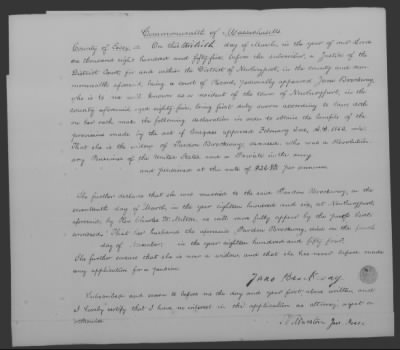 Commonwealth of Massachusetts
County of Essex On this day of March, in the year of our Lord
one thousand eight hundred and fifty five before the subscriber, a Justice of the
District Court, for and within the District of Newburyport, in the county and com-
monwealth aforesaid, being a court of Record, personally appeared Jane Brockway,
who is to me well known as a resident of the town of Newburyport, in the
county aforesaid aged eighty five, being first duly sworn according to law doth
on her oath make the following declaration in order to obtain the benefits of the
provisions made by the act of Congress approved February
That she is the widow of Pardon Brockway, deceased, who was a Revolution-
ary Pensioner of the United States and a Private in the army
and pensioner at the rate of per annum
She further declares that she was married to the said Pardon Brockway, on the
seventeenth day of March, in the year eighteen hundred and six, at Newburyport,
aforesaid, by Rev. Charles W. Milton, as will more fully appear by the proofs hereto
annexed; That her husband the aforesaid, Pardon Brockway, died on the fourth
day of November, in the year eighteen hundred and fifty four.
She further swears that she is now a widow, and that she has never before made
any application for a pension.
Jane Brockway
Subscribed and sworn to before me the day and year first above written and
I hereby certify that I have no interest in the application as attorney agent or
otherwise
Marston Jus. Peace